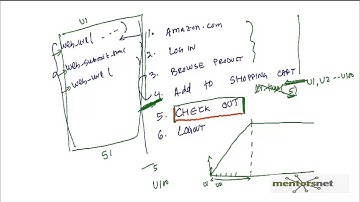 U1
web_url( ... )
web_submit_
web_url (
S1
1. Amazon.com
2. LOG IN
3. BROWSE PRODUCT
4. Add to SHOPPING CART
5. CHECK OUT
6. LOGOUT
U1, U2 --
5
mentorsnet